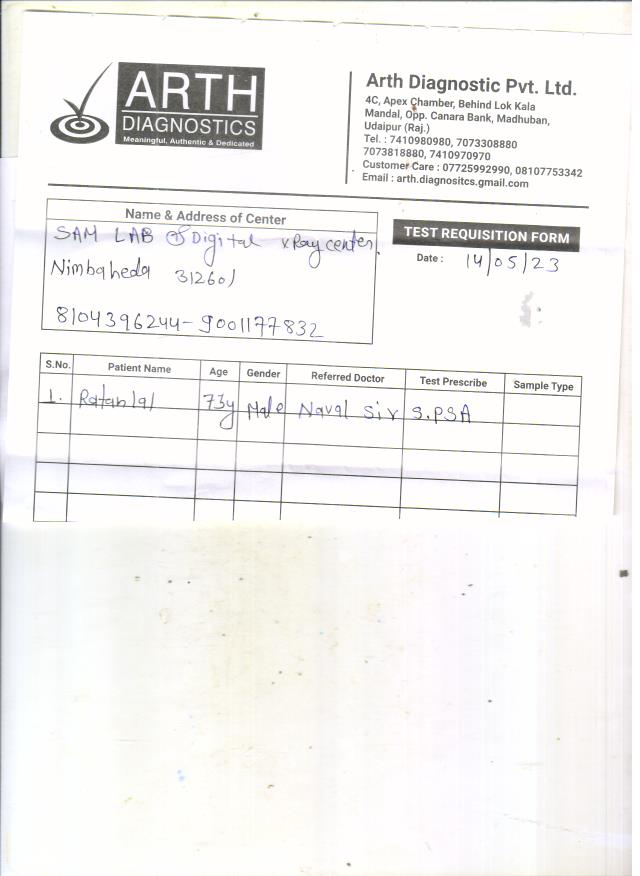 ARTH
DIAGNOSTICS
Meaningful, Authentic & Dedicated
Arth Diagnostic Pvt. Ltd.
4C, Apex Chamber, Behind Lok Kala
Mandal, Opp. Canara Bank, Madhuban,
Udaipur (Raj.)
Tel. : 7410980980, 7073308880
7073818880, 7410970970
Customer Care : 07725992990, 08107753342
Email : arth.diagnositcs.gmail.com
Name & Address of Center
SAM LAB Digital xRay center.
Nimbaheda 312601
8104396244-9001177832
TEST REQUISITION FORM
Date : 14/05/23
S.No. Patient Name Age Gender Referred Doctor Test Prescribe Sample Type
1. Ratanlal 73y Male Naval Sir S.PSA